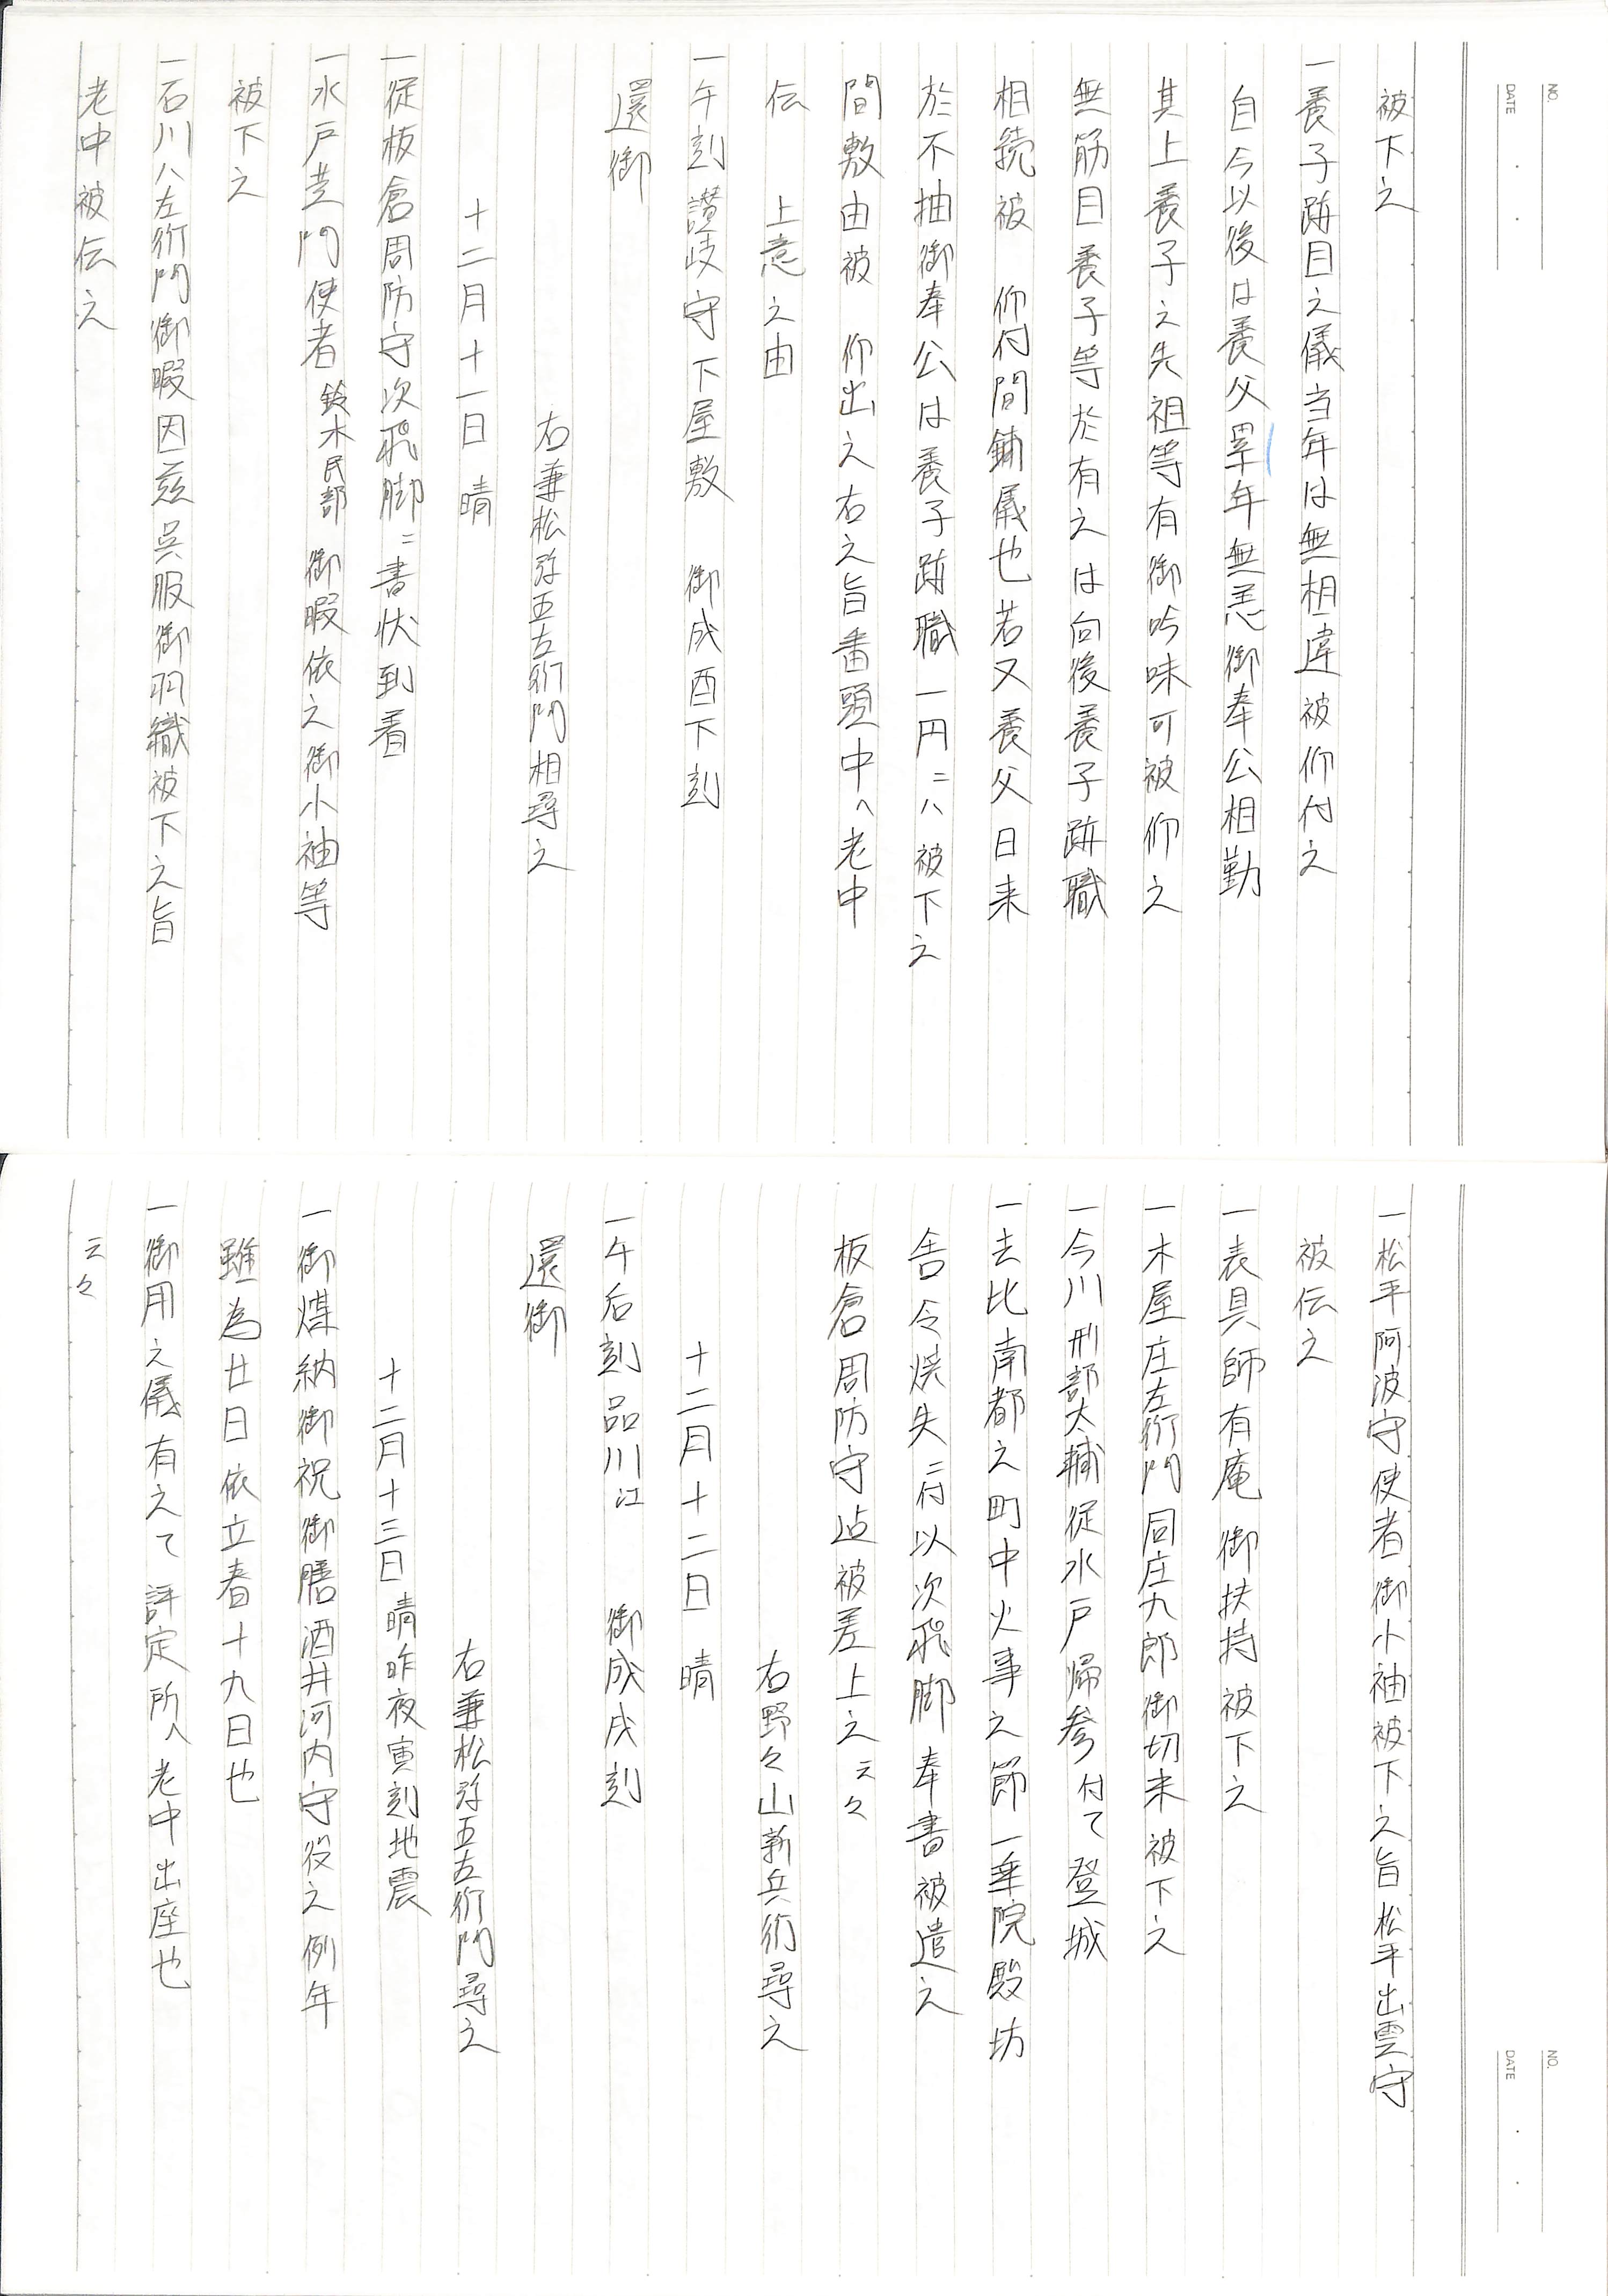 NO.
DATE
被下之
一養子跡目之儀当年は無相違被仰付之
自今以後は養父累年無恙御奉公相勤
其上養子之先祖等有御吟味可被仰之
無筋目養子等於有之は向後養子跡職
相続被 仰付間鋪儀也若又養父日来
於不抽御奉公は養子跡職一円ニハ被下之
間敷由被 仰出之右之旨番頭中ヘ老中
伝 上意之由
一午刻讃岐守下屋敷 御成酉下刻
還御
右兼松弥五左衛門相尋之
十二月十一日 晴
一従板倉周防守次飛脚ニ書状到着
一水戸黄門使者鈴木民部 御暇依之御小袖等
被下之
一石川八左衛門御暇因茲呉服御羽織被下之旨
老中被伝之
NO.
DATE
一松平阿波守使者御小袖被下之旨松平出雲守
被伝之
一表具師有庵御扶持被下之
一木屋庄左衛門同庄九郎御切米被下之
一今川刑部大輔従水戸帰参付て登城
一去比南都之町中火事之節一乗院殿坊
舎令焼失ニ付以次飛脚奉書被遣之
板倉周防守迄被差上之云々
右野々山新兵衛尋之
十二月十二日 晴
一午后刻品川江 御成戌刻
還御
右兼松弥五左衛門尋之
十二月十三日 晴昨夜寅刻地震
一御煤納御祝御膳酒井河内守役之例年
雖為廿日依立春十九日也
一御用之儀有之て評定所ヘ老中出座也
云々